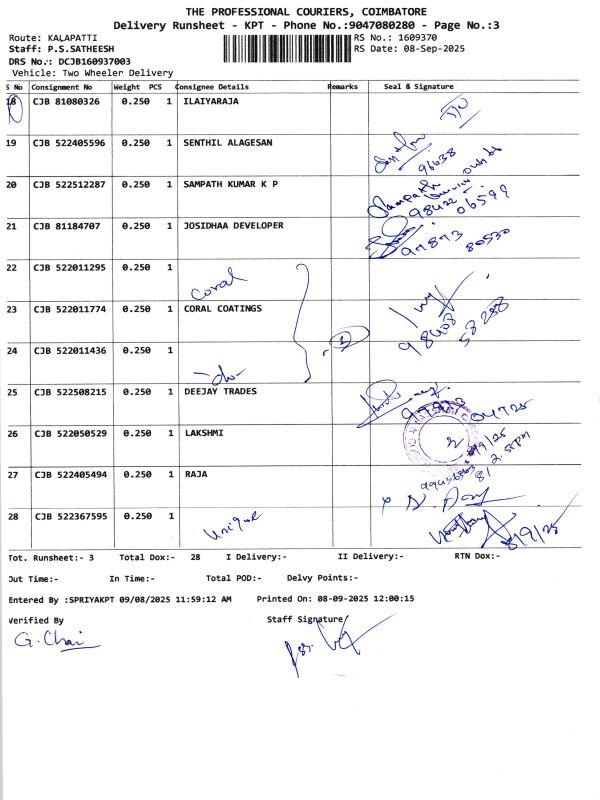 THE PROFESSIONAL COURIERS, COIMBATORE
Delivery Runsheet - KPT - Phone No.:9047080280 - Page No.:3
Route: KALAPATTI
RS No.: 1609370
Staff: P.S.SATHEESH
RS Date: 08-Sep-2025
DRS No.: DCJB160937003
Vehicle: Two Wheeler Delivery
S No Consignment No Weight PCS Consignee Details Remarks Seal & Signature
18 CJB 81080326 0.250 1 ILAIYARAJA
19 CJB 522405596 0.250 1 SENTHIL ALAGESAN
96638
20 CJB 522512287 0.250 1 SAMPATH KUMAR K P
Sampath
98422 06599
21 CJB 81184707 0.250 1 JOSIDHAA DEVELOPER
97873 80530
22 CJB 522011295 0.250 1 Coral
23 CJB 522011774 0.250 1 CORAL COATINGS
98408 58288
24 CJB 522011436 0.250 1 -do-
25 CJB 522508215 0.250 1 DEEJAY TRADES
26 CJB 522050529 0.250 1 LAKSHMI
27 CJB 522405494 0.250 1 RAJA
28 CJB 522367595 0.250 1 Unique
8/9/25
Tot. Runsheet:- 3 Total Dox:- 28 I Delivery:- II Delivery:- RTN Dox:-
Out Time:- In Time:- Total POD:- Delvy Points:-
Entered By :SPRIYAKPT 09/08/2025 11:59:12 AM Printed On: 08-09-2025 12:00:15
Verified By Staff Signature
G. Chai